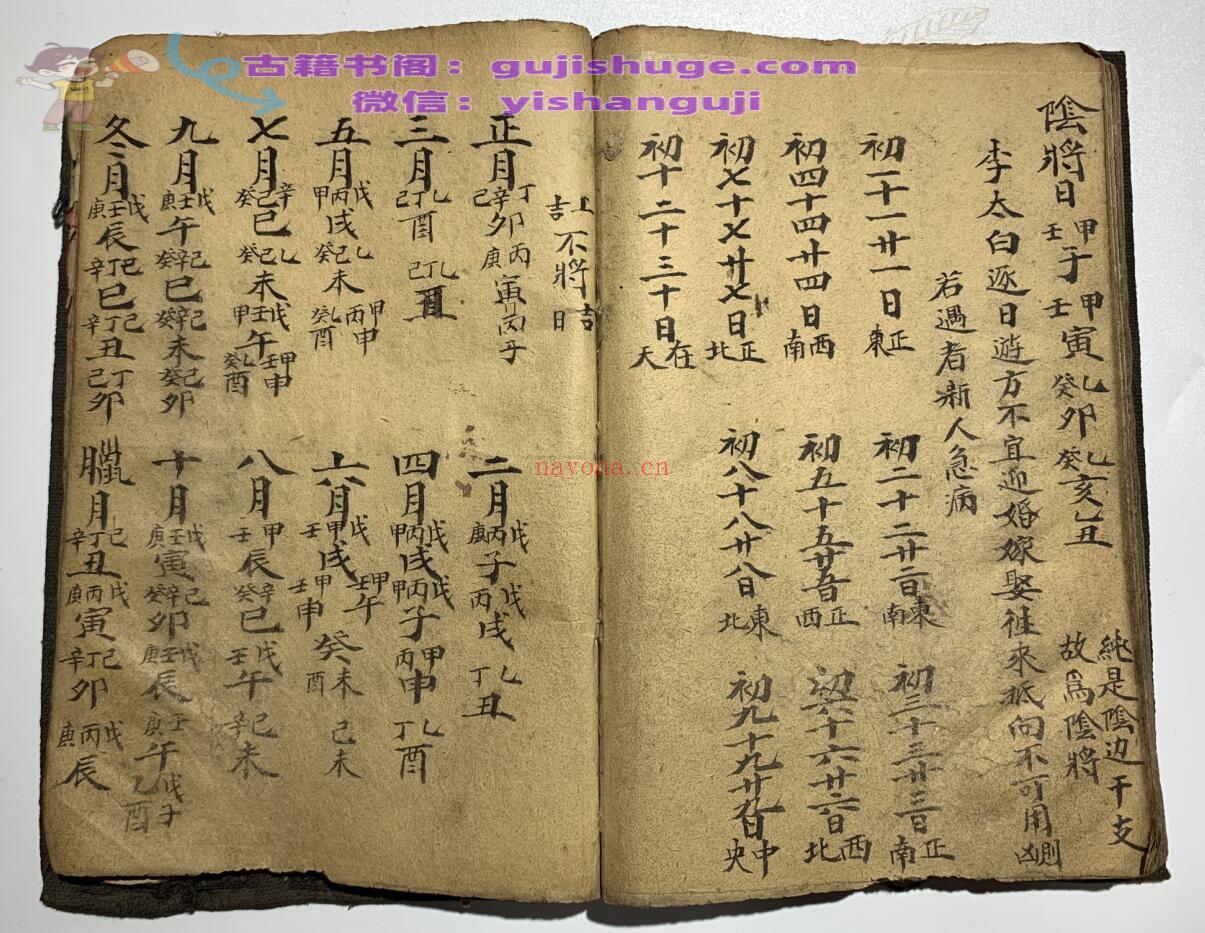 古籍书阁：gujishuge.com
微信：yishanguji
陰將日 甲壬子 甲壬寅 乙癸卯 乙癸亥 乙丑 純是陰边干支故爲陰將
李太白逐日遊方不宜迎婚嫁娶徃來抵向不可用則凶
若遇者新人急病
初一十一廿一日正東
初二十二廿二日東南
初三十三廿三日正南
初四十四廿四日西南
初五十五廿五日正西
初六十六廿六日西北
初七十七廿七日正北
初八十八廿八日東北
初九十九廿九日中央
初十二十三十日在天
上吉不將吉日
正月 丁辛己卯 丙庚寅 丙子
二月 戊丙庚子 戊丙戌 乙丁丑
三月 乙丁己酉 乙丁己丑
四月 戊丙甲戌 戊丙甲子 甲丙申 乙丁酉
五月 戊丙甲戌 乙己癸未 甲丙申 乙癸酉
六月 戊甲壬戌 甲壬午 甲壬申 癸未 酉 己未
七月 辛己癸巳 乙己癸未 戊壬甲午 甲壬申 乙癸酉
八月 甲壬辰 辛癸巳 戊壬午 己辛未
九月 戊壬庚午 己辛癸巳 己辛癸未 己癸卯
十月 戊壬庚寅 己辛癸卯 戊壬庚辰 壬庚午 戊子 乙酉
冬月 戊壬庚辰 己丁辛巳 己丁辛丑 丁己卯
臘月 己丁辛丑 戊丙庚寅 己丁辛卯 戊丙庚辰
nayona.cn